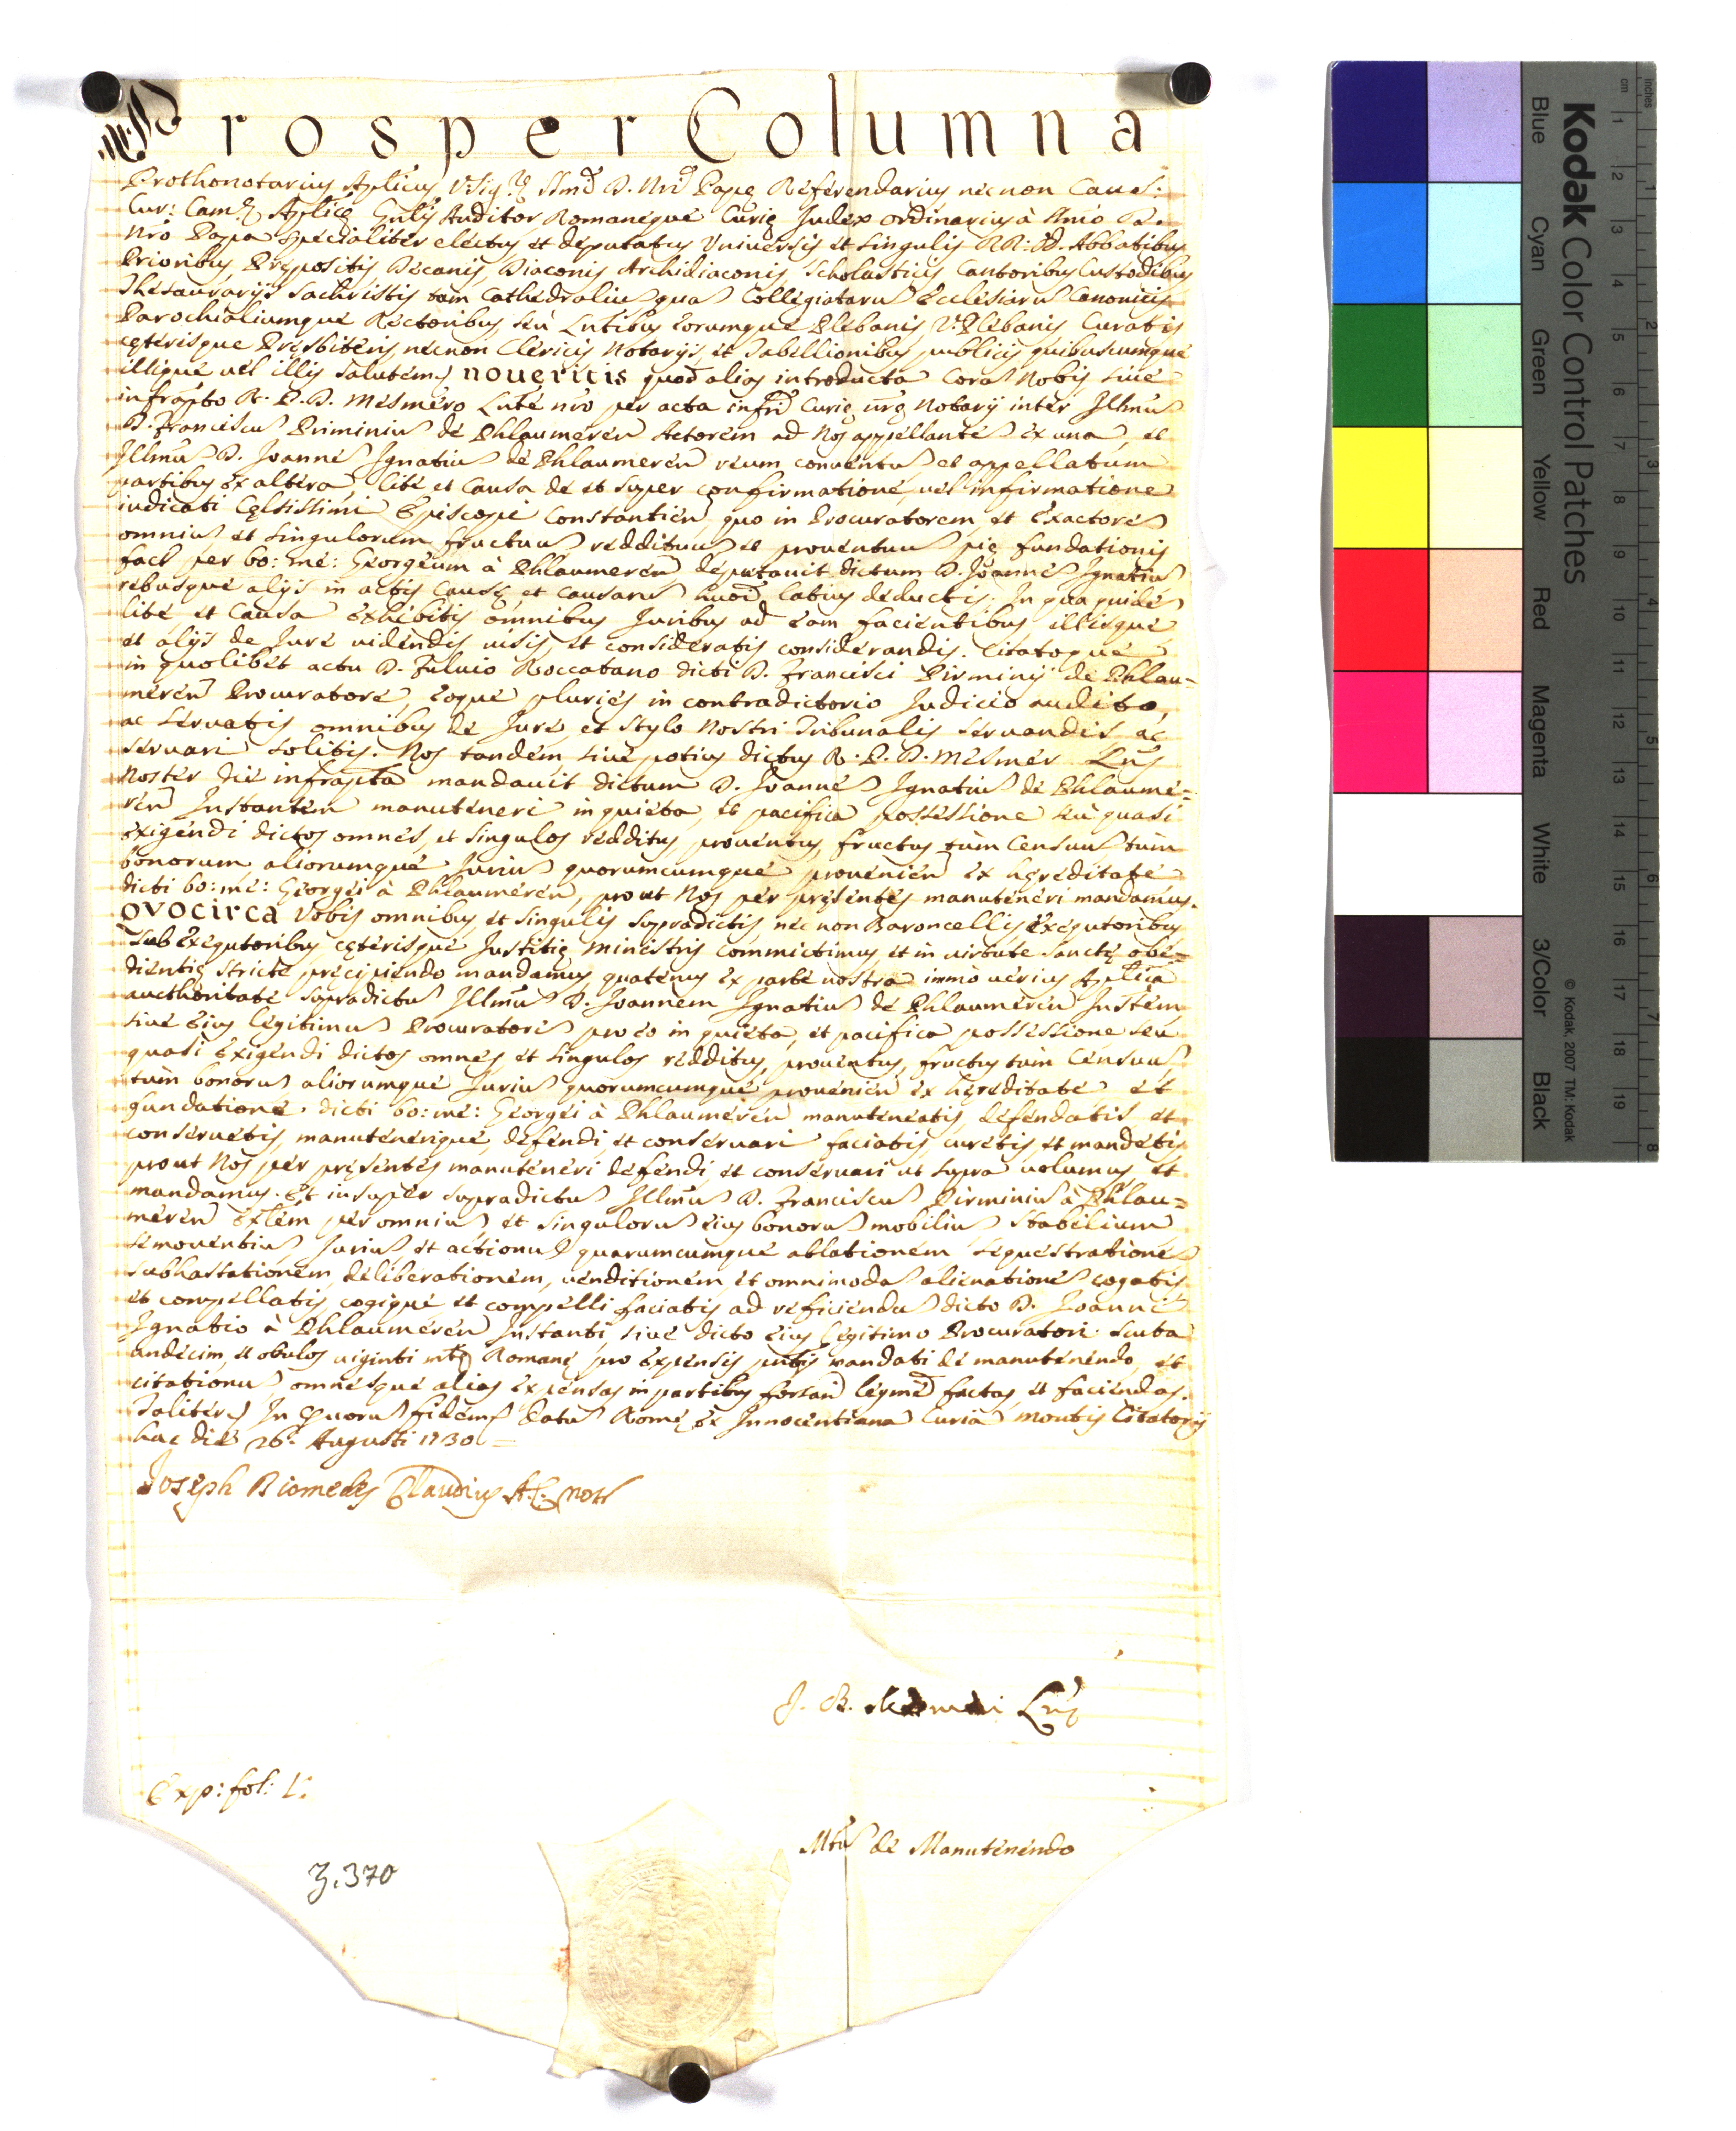 Prosper Columna
Prothonotarius Aplicus Vsiq₃ Ssmi D. Nri Pape Referendarius necnon Caus:
Cur: Camę Aplicę Gnlis Auditor Romaneque Curię Judex ordinarius à Ssmo D.
Nro Papa specialiter electus et deputatus Vniversis et singulis RR: DD. Abbatibus
Prioribus, Prępositis Decanis, Diaconis Archidiaconis, Scholasticis Cantoribus Custodibus
Thesaurarijs Sachristis tam Cathedraliu qua Collegiataru Ecclesiaru Canonicis
Parochialiumque Rectoribus seù Lntibus eorumque Plebanis V.Plebanis Curatis
cęterisque Presbiteris, necnon Clericis Notarijs, et Tabellionibus publicis quibuscumque
illique vel illis salutem noueritis quod alias introducta Cora Nobis siue
infrapto R. P. D. Mesmero Lnte nro per acta infri Curię nrę Notarij inter Illmu
D. Franciscu Pirminiu de Phlaumeren Actorem ad Nos appellante ex una, et
Illmu D. Joanne Ignatiu de Phlaumeren reum conuentu et appellatum
partibus ex altera, lite et Causa de et super confirmatione, uel infirmatione
iudicati Cęlsissimi Episcopi Constantien, quo in Procuratorem, et Exactore
omniu et singulorum fructuu reddituu et prouentuu pię fundationis
fact per bo: me: Georgeum à Phlaumeren deputauit dictum D. Joanne Ignatiu
rebusque alijs in actis Causę, et Causaru huoi latius deductis. In qua quide
lite et Causa exhibitis omnibus Juribus ad eam facientibus illisque
et alijs de Jure uidendis uisis, et consideratis considerandis. Citatoque
in quolibet actu D. Fuluio Roccatano dicti D. Francisci Pirminij de Phlau=
meren Procuratore, eoque pluries in contradictorio Judicio audito,
ac seruatis omnibus de Jure, et stylo Nostri Tribunalis seruandis ac
seruari solitis. Nos tandem siue potius dictus R. P. D. Mesmer Lns
Noster die infrapta mandauit dictum D. Joanne Ignatiu de Phlaume=
ren Instantem manuteneri in quieta, et pacifica possessione seu quasi
exigendi dictos omnes, et singulos redditus, prouentus, fructus tùm Censuu tùm
bonorum aliorumque Juriu quorumcumque prouenien ex hęreditate
dicti bo: me: Georgei à Phlaumeren, prout Nos per pręsentes manuteneri mandamus.
QVOCIRCA Vobis omnibus, et singulis supradictis, nec non Baroncellis exequtoribus
subexequtoribus cęterisque Justitię Ministris committimus, et in uirtute sanctę obe=
dientię stricte pręcipiendo mandamus, quatenus ex parte nostra immò uerius Aplica
aucthoritate supradictu Illmu D. Joannem Ignatiu de Phlaumeren Instem
siue eius legitimu Procuratore pro eo in quieta, et pacifica possessione seu
quasi exigendi dictos omnes, et singulos redditus, prouentus, fructus tùm Censuu,
tùm bonoru aliorumque Juriu quorumcumque prouenien ex hęreditate et
fundatione dicti bo: me: Georgei à Phlaumeren manuteneatis, defendatis, et
conseruetis, manutenerique, defendi, et conseruari faciatis, curetis, et mandetis
prout Nos per pręsentes manuteneri defendi, et conseruari ut supra uolumus, et
mandamus. Et insuper supradictu Illmu D. Franciscu Pirminiu à Phlau=
meren Extem per omniu et singuloru eius bonoru mobiliu stabilium
semouentiu Juriu et actionu quarumcumque ablationem sequestratione
subhastationem, deliberationem, uenditionem, et omnimoda alienatione cogatis,
et compellatis, cogique et compelli faciatis ad reficiendu dicto D. Joanni
Ignatio à Phlaumeren Instanti, siue dicto eius legitimo Procuratori scuta
undecim, et obulos uiginti mtę Romanę pro expensis pntis mandati de manutenendo, et
citationu omnesque alias expensas in partibus forsan legme factas, et faciendas.
Taliter In Quoru fidem Datu Romę ex Innocentiana Curia Montis Citatorij
hac die 26. Augusti 1730 =
Joseph Diomedes Claudius A. C. Not
J. B. Mesmer Lns
Exp: fol: 1:
Mtu de Manutenendo
3.370
Kodak Color Control Patches
Blue Cyan Green Yellow Red Magenta White 3/Color Black
© Kodak, 2007 TM: Kodak
cm 1 2 3 4 5 6 7 8 9 10 11 12 13 14 15 16 17 18 19
inches 1 2 3 4 5 6 7 8